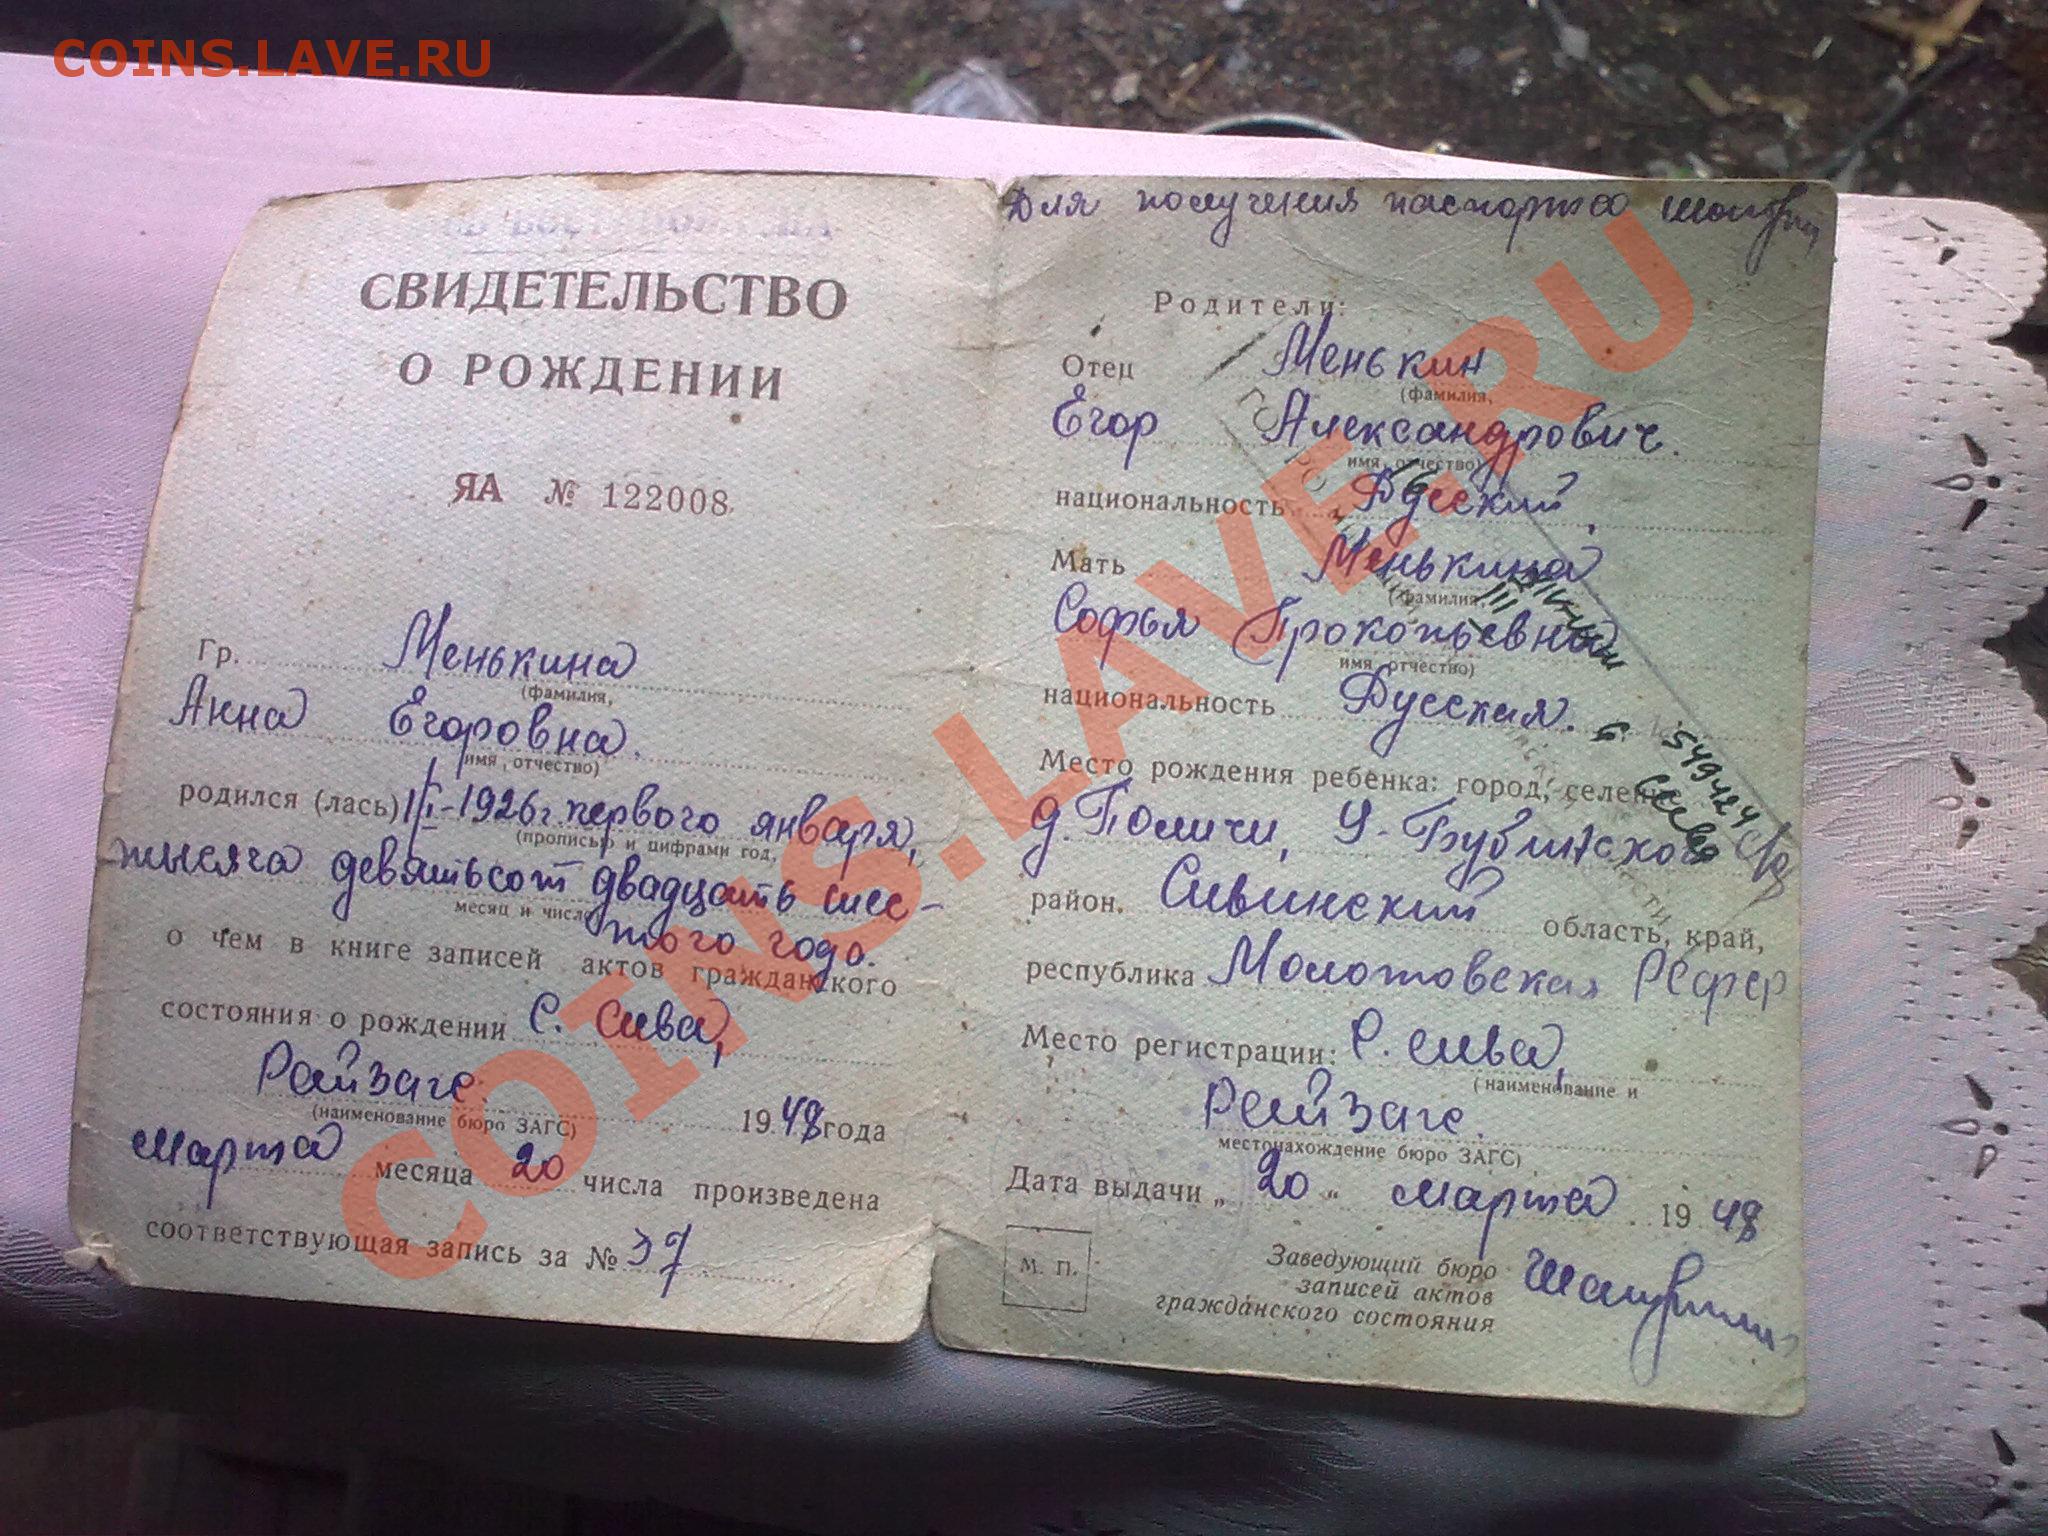 COINS.LAVE.RU
СВИДЕТЕЛЬСТВО
О РОЖДЕНИИ
ЯА № 122008
Гр. Менькина
(фамилия,
Анна Егоровна.
имя, отчество)
родился (лась) 1/I-1926 г. первого января,
(прописью и цифрами год,
тысяча девятьсот двадцать шес-
месяц и число)
того года.
о чем в книге записей актов гражданского
состояния о рождении С. Сива,
Райзагс.
(наименование бюро ЗАГС)
1948 года
марта месяца 20 числа произведена
соответствующая запись за № 37
Для получения паспорта
Родители:
Отец Менькин
(фамилия,
Егор Александрович.
имя, отчество)
национальность Русский,
Мать Менькина
(фамилия,
Софья Прокопьевна
имя, отчество)
национальность Русская.
549424
Место рождения ребенка: город, селение
д. Поличи, У-Бубинского
район. Сивинский область, край,
республика Молотовская РСФСР
Место регистрации: С. Сива,
(наименование и
Райзагс.
местонахождение бюро ЗАГС)
Дата выдачи „20" марта 1948
М. П.
Заведующий бюро
записей актов
гражданского состояния
COINS.LAVE.RU